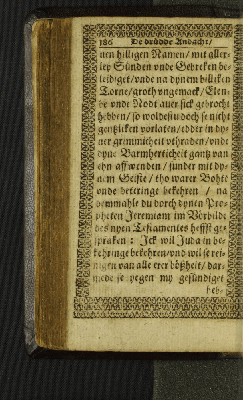 186 De drüdde Andacht/
nen hilligen Namen/ mit aller
ley Sünden vnde Gebreken be-
leidiget/ vnde na dynem billiken
Torne/ groth vngemack/ Elen-
de vnde Nodt auer sick gebrocht
hebben/ so woldestu doch se nicht
gentzliken vorlaten/ edder in dy-
ner grimmicheit vthraden/ vnde
dyne Barmherticheit gantz van
en affwenden/ sunder mit dy-
nem Geiste/ tho warer Bothe
vnde beteringe bekehren/ na
demmahle du dorch dynen Pro-
pheten Jeremiam im Vörbilde
des nyen Testamentes heffst ge-
spraken: Ick wil Juda in be-
kehringe bekehren/ vnd wil se rei-
nigen van alle erer bößheit/ dar-
mede se yegen my gesündiget
heb-